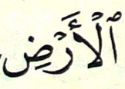 ٱلْأَرْضِ